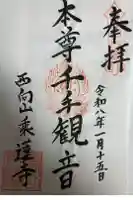 奉拝
令和八年一月十五日
本尊千手観音
西向山乗蓮寺